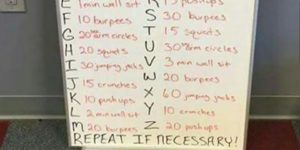 E 1 min wall sit R 15 pushups
F 10 burpees S 30 burpees
G 20 arm circles T 15 squats
H 20 squats U 30 arm circles
I 30 jumping jacks V 3 min wall sit
J 15 crunches W 20 burpees
K 10 pushups X 60 jumping jacks
L 2 min wall sit Y 10 crunches
M 20 burpees Z 20 pushups
REPEAT IF NECESSARY!